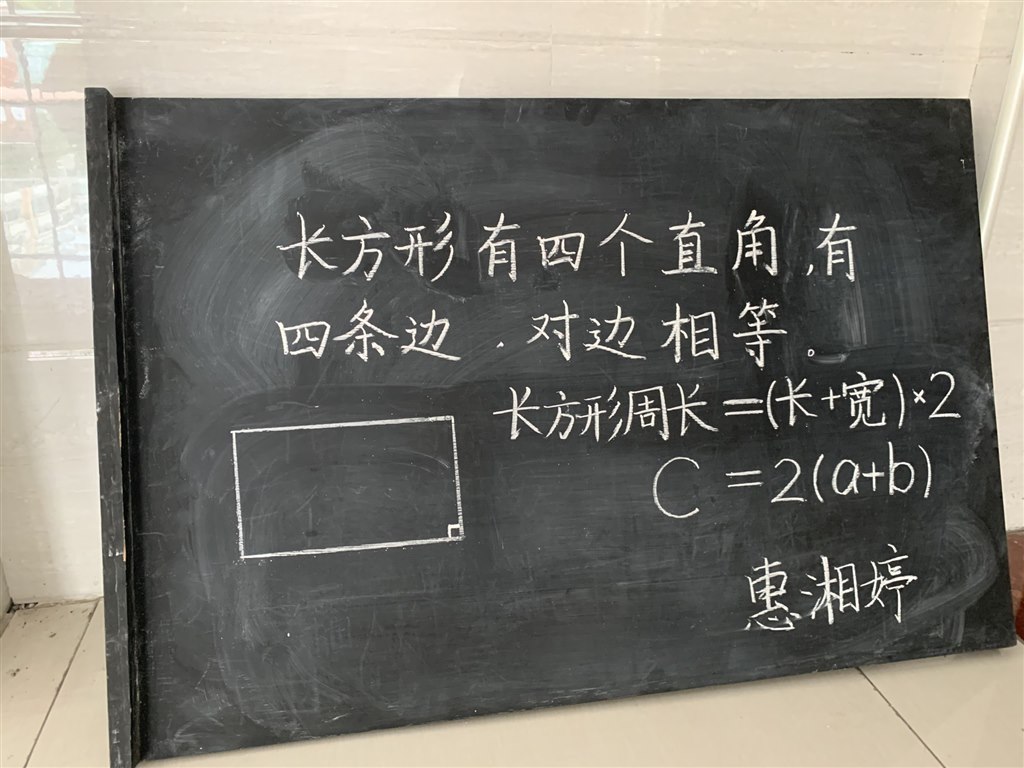 长方形有四个直角，有
四条边，对边相等。
长方形周长=(长+宽)×2
C=2(a+b)
惠湘婷